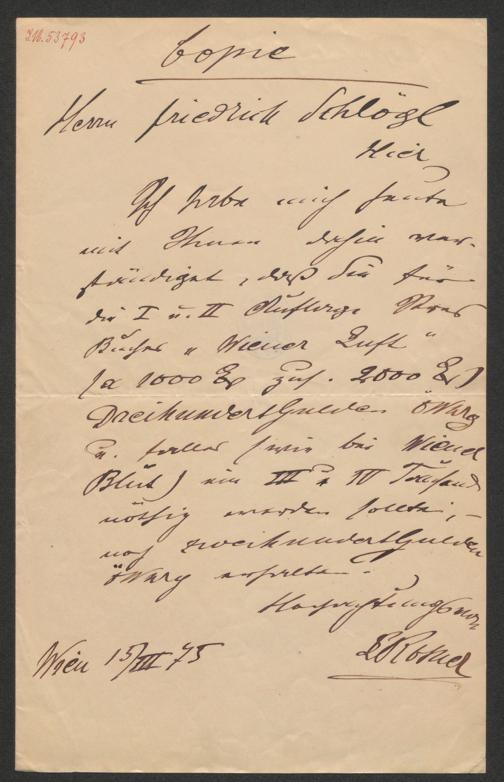 I.N. 53793
Copie
Herrn Friedrich Schlögl
Hier
Ich habe mich heute
mit Ihnen dahin ver-
ständiget, daß Sie für
die I u. II Auflage Ihres
Buches „Wiener Luft"
(a 1000 Ex zus. 2000 Ex)
Dreihundert Gulden öWrg
u. falls (wie bei Wiener
Blut) ein III u IV Tausend
nöthig werden sollte, –
noch zweihundert Gulden
öWrg erhalten.
Hochachtungsvoll
LRosner
Wien 15/III 75